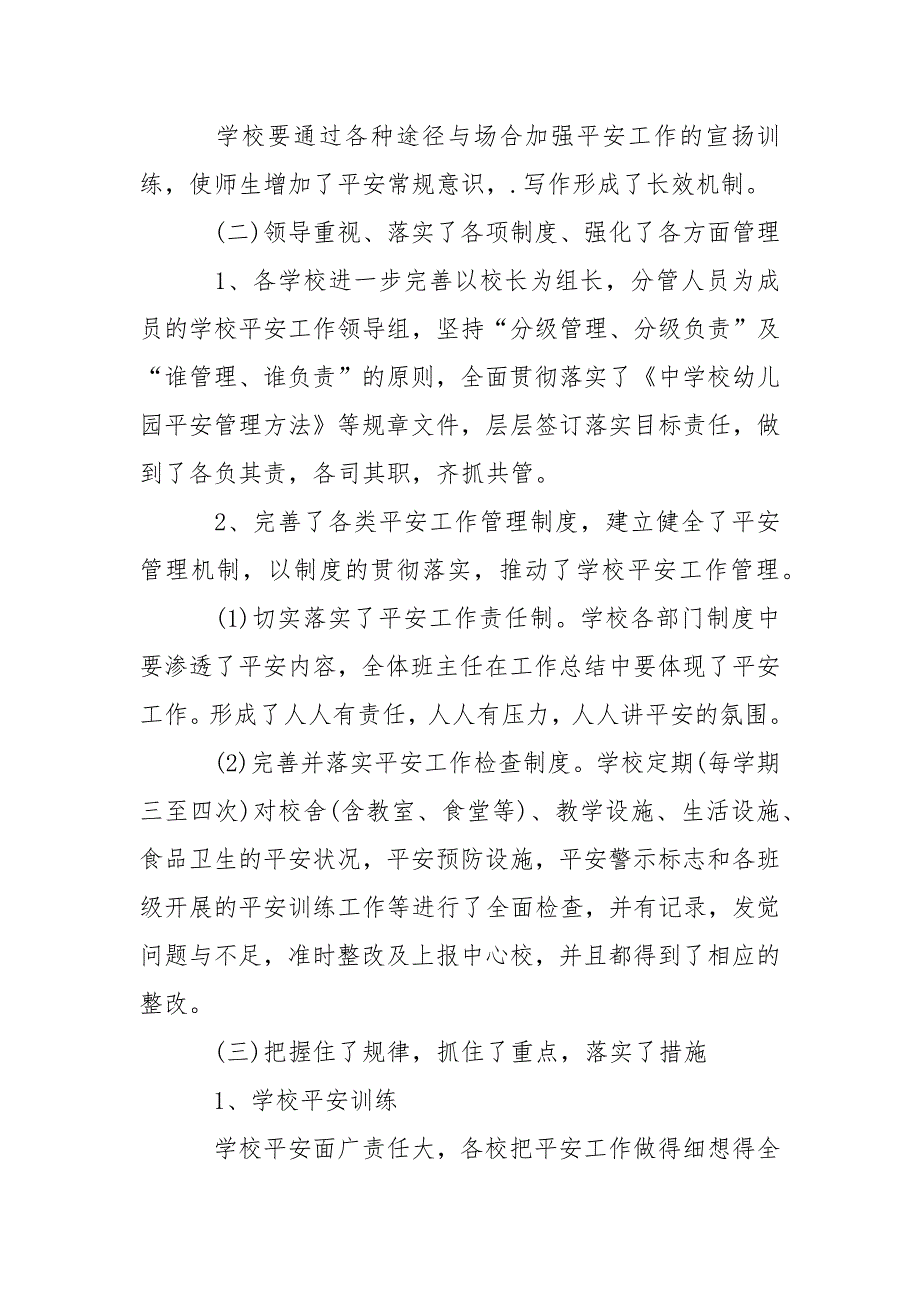 学校要通过各种途径与场合加强平安工作的宣扬训
练，使师生增加了平安常规意识，.写作形成了长效机制。
(二)领导重视、落实了各项制度、强化了各方面管理
1、各学校进一步完善以校长为组长，分管人员为成
员的学校平安工作领导组，坚持“分级管理、分级负责”及
“谁管理、谁负责”的原则，全面贯彻落实了《中学校幼儿
园平安管理方法》等规章文件，层层签订落实目标责任，做
到了各负其责，各司其职，齐抓共管。
2、完善了各类平安工作管理制度，建立健全了平安
管理机制，以制度的贯彻落实，推动了学校平安工作管理。
(1)切实落实了平安工作责任制。学校各部门制度中
要渗透了平安内容，全体班主任在工作总结中要体现了平安
工作。形成了人人有责任，人人有压力，人人讲平安的氛围。
(2)完善并落实平安工作检查制度。学校定期(每学期
三至四次)对校舍(含教室、食堂等)、教学设施、生活设施、
食品卫生的平安状况，平安预防设施，平安警示标志和各班
级开展的平安训练工作等进行了全面检查，并有记录，发觉
问题与不足，准时整改及上报中心校，并且都得到了相应的
整改。
(三)把握住了规律，抓住了重点，落实了措施
1、学校平安训练
学校平安面广责任大，各校把平安工作做得细想得全